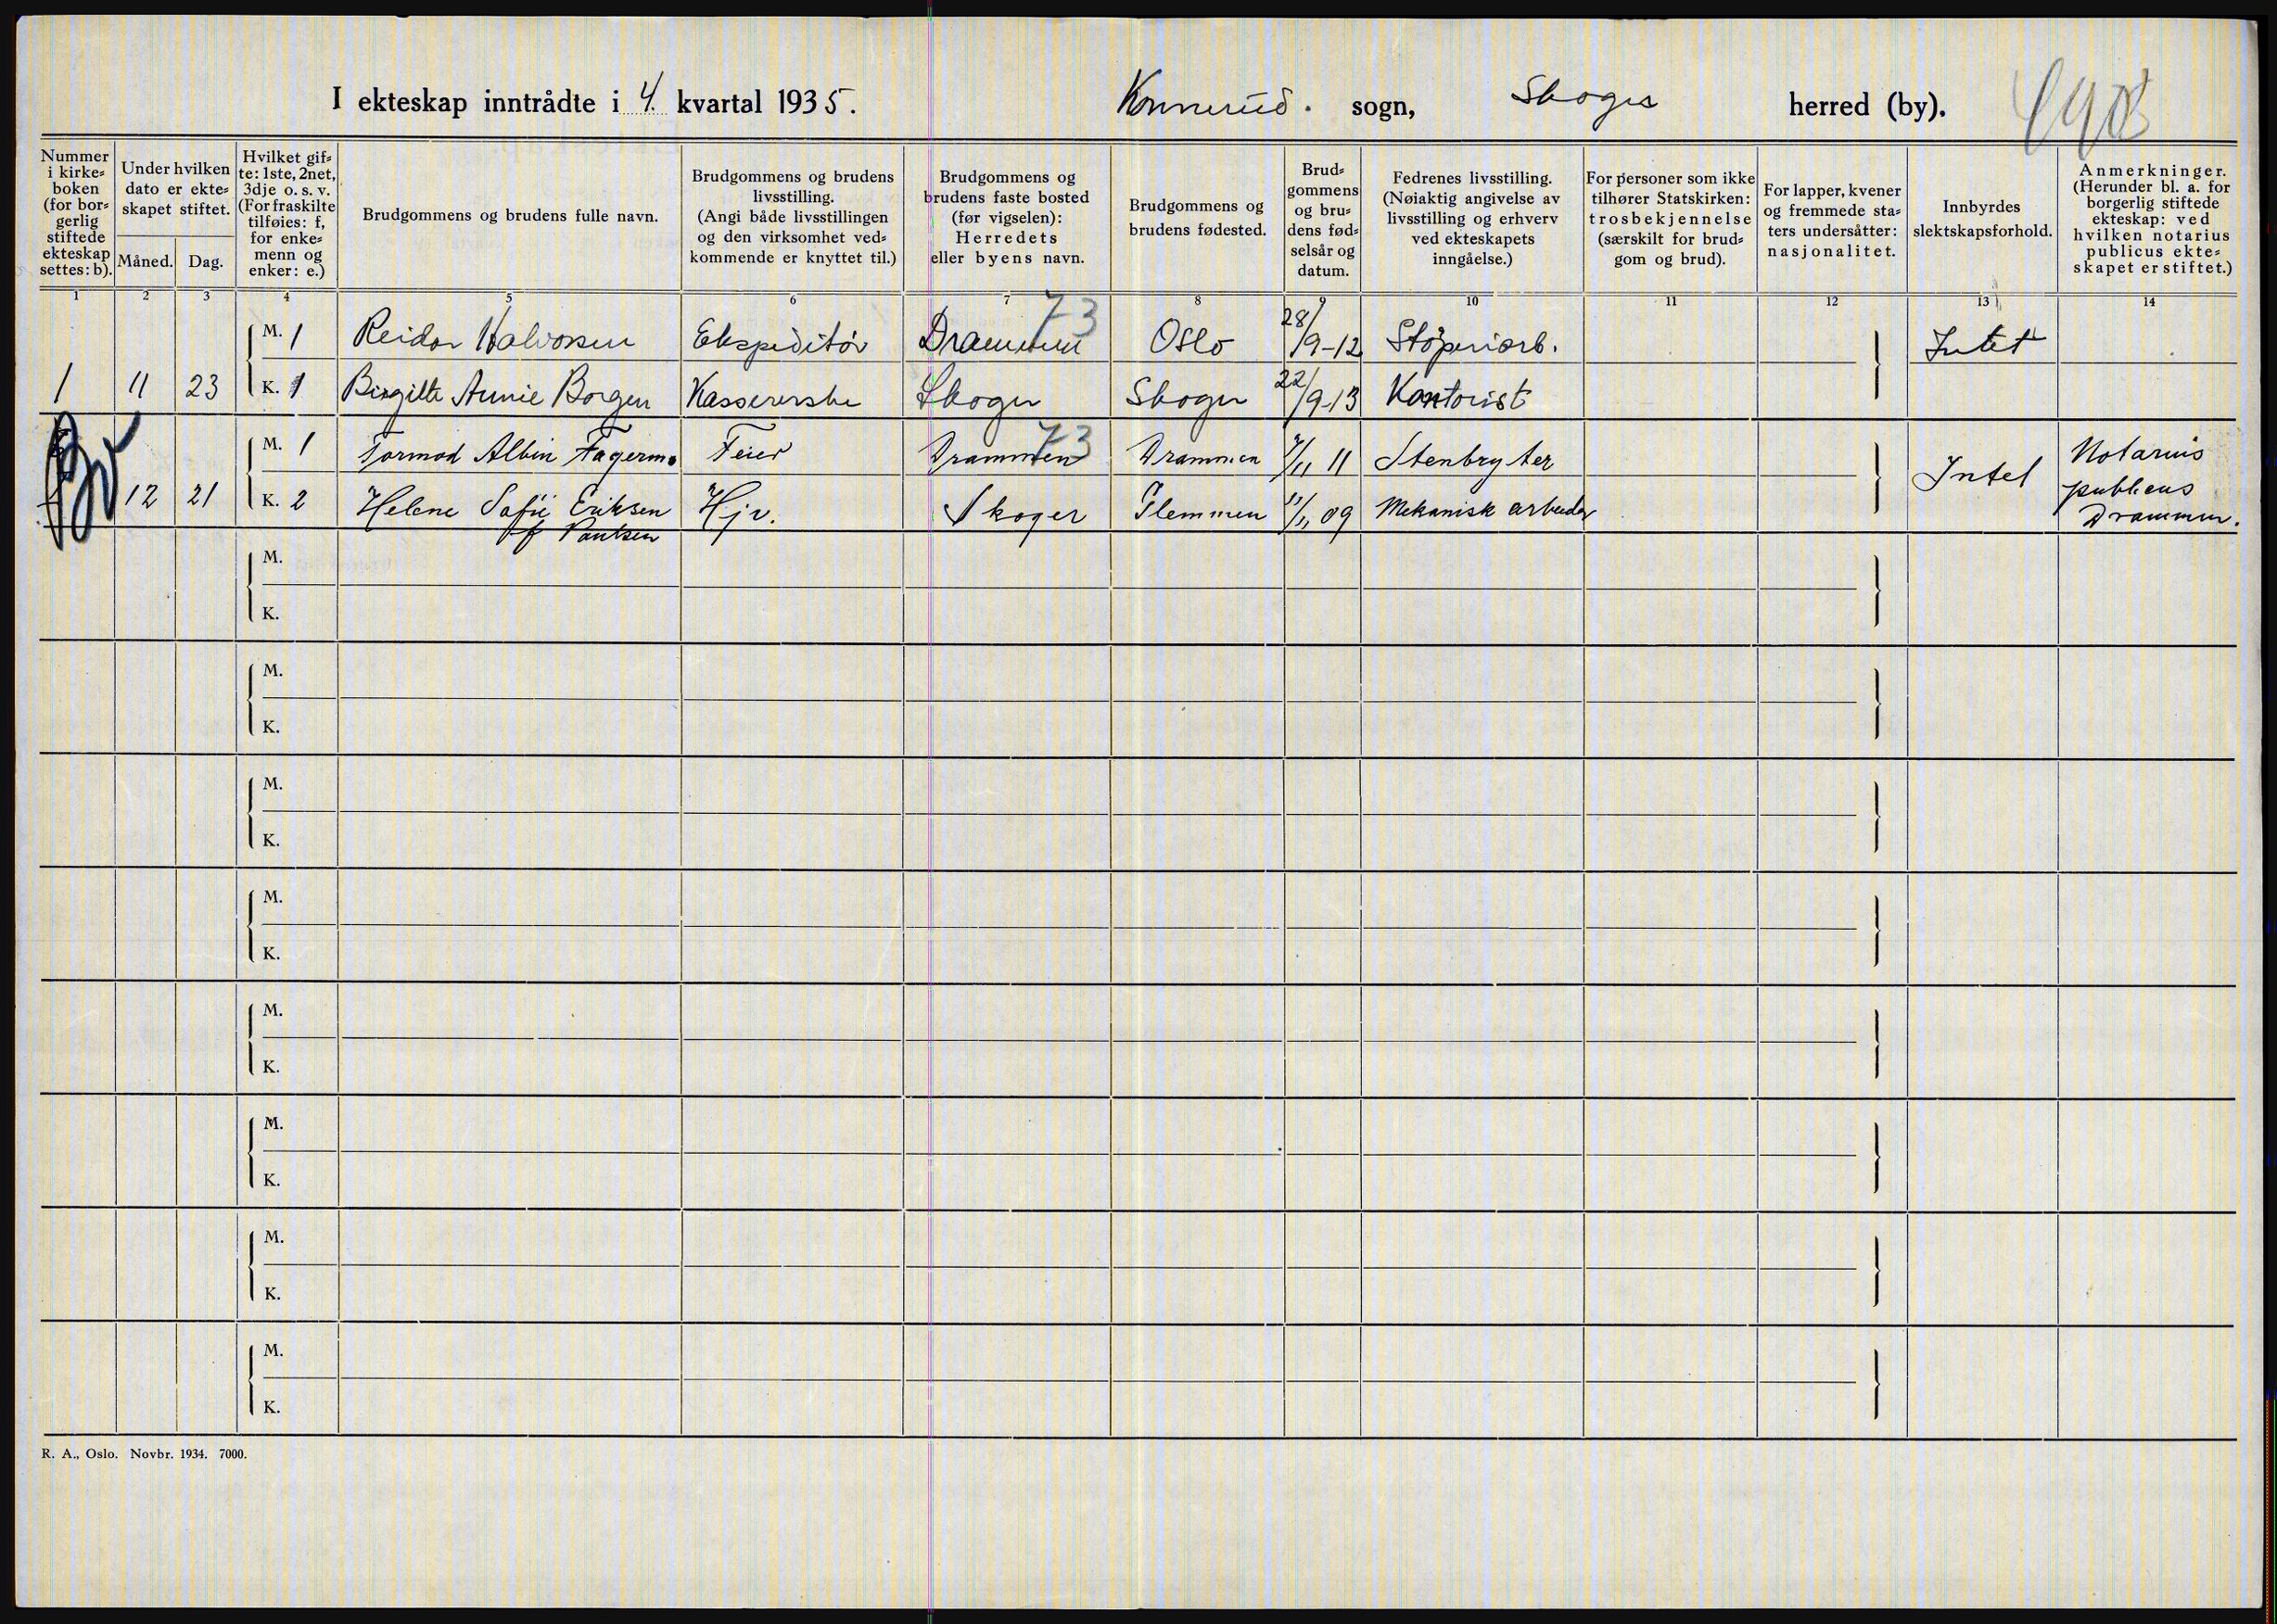 I ekteskap inntrådte i 4. kvartal 1935. Konnerud. sogn, Skoger herred (by).
Nummer i kirke=boken (for bor=gerlig stiftede ekteskap settes: b).
Under hvilken dato er ekte=skapet stiftet.
Måned. Dag.
Hvilket gif=te: 1ste, 2net, 3dje o. s. v. (For fraskilte tilføies: f, for enke=menn og enker: e.)
Brudgommens og brudens fulle navn.
Brudgommens og brudens livsstilling. (Angi både livsstillingen og den virksomhet ved=kommende er knyttet til.)
Brudgommens og brudens faste bosted (før vigselen): Herredets eller byens navn.
Brudgommens og brudens fødested.
Brud=gommens og bru=dens fød=selsår og datum.
Fedrenes livsstilling. (Nøiaktig angivelse av livsstilling og erhverv ved ekteskapets inngåelse.)
For personer som ikke tilhører Statskirken: trosbekjennelse (særskilt for brud=gom og brud).
For lapper, kvener og fremmede sta=ters undersåtter: nasjonalitet.
Innbyrdes slektskapsforhold.
Anmerkninger. (Herunder bl. a. for borgerlig stiftede ekteskap: ved hvilken notarius publicus ekte=skapet er stiftet.)
1 2 3 4 5 6 7 8 9 10 11 12 13 14
73
M. 1 Reidar Halvorsen Ekspeditør Drammen Oslo 28/9-12 Støperiarb. Intet
1 11 23 K. 1 Birgitte Annie Borgen Kassererske Skoger Skoger 22/9-13 Kontorist
73
M. 1 Tormod Albin Fagermo Feier Drammen Drammen /11 11 Stenbryter Intet Notarius
12 21 K. 2 Helene Sofie Eriksen Hjv. Skoger Glemmen 09 Mekanisk arbeider publicus
f Drammen.
M.
K.
M.
K.
M.
K.
M.
K.
M.
K.
M.
K.
M.
K.
M.
K.
R. A., Oslo. Novbr. 1934. 7000.